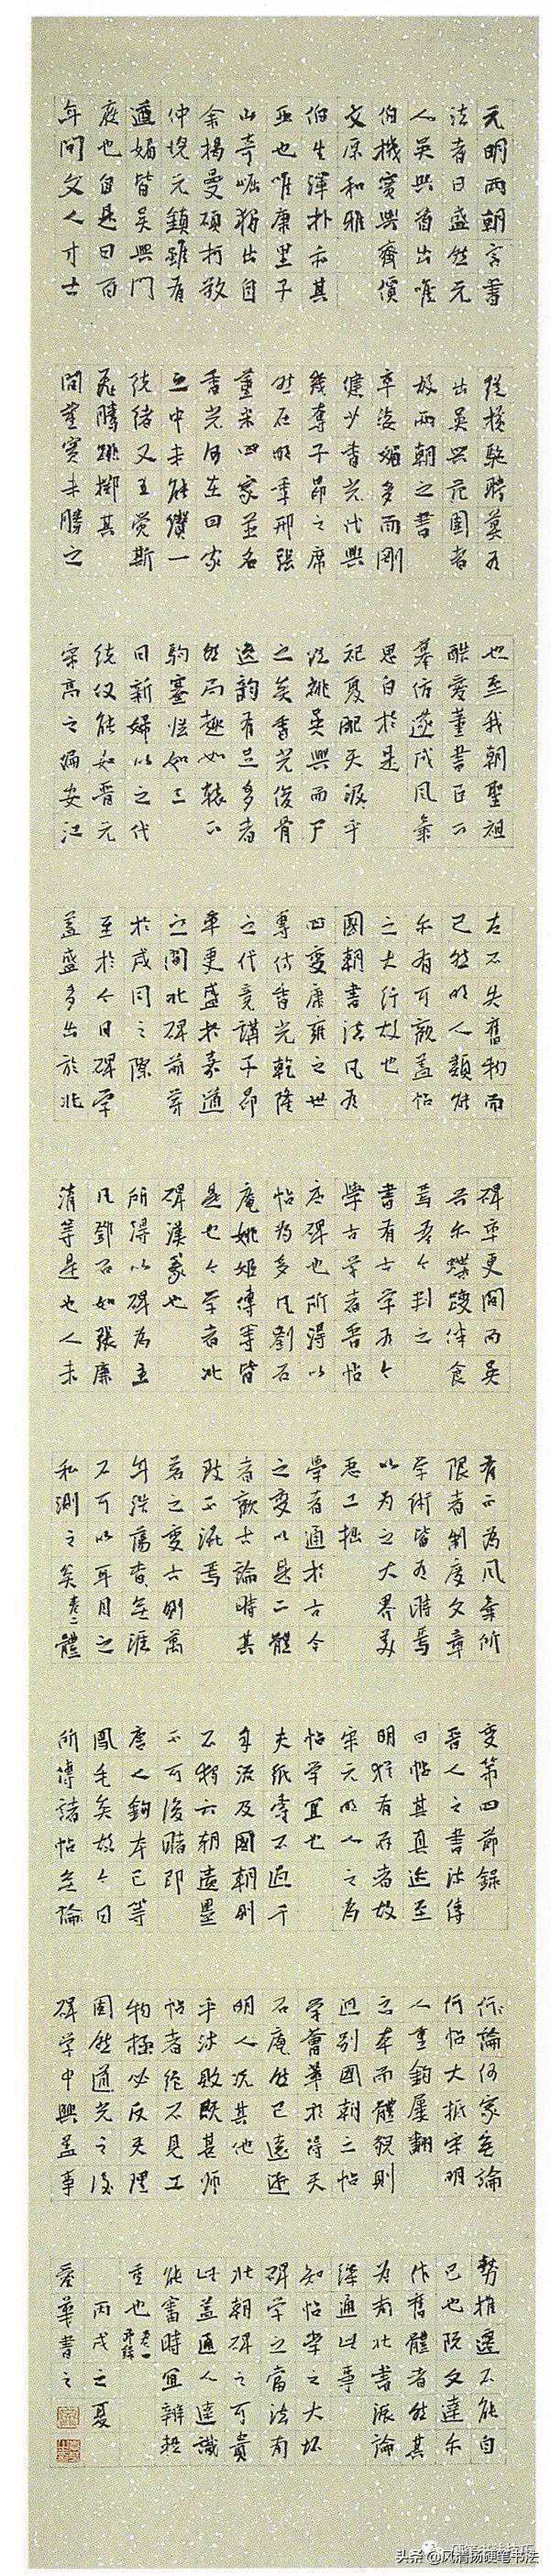 元明兩朝言書
法者日盛然元
人吳興首出唯
伯機實與齊價
文原和雅
伯生渾朴亦其
亞也唯康里子
山奇崛獨出自
余揭曼碩柯敬
仲倪元鎮雖有
遒媚皆吳興門
庭也自是四百
年間文人才士
縱極馳騁莫有
出吳興范圍者
故兩朝之書
率姿媚多而剛
健少香光代興
幾奪子昂之席
然在明季邢張
董米四家並名
香光仍在四家
之中未能續一
統緒又王覺斯
飛騰跳擲其
間董實未勝之
也至我朝聖祖
酷愛董書臣下
摹仿遂成風氣
思白於是
祀夏配天汲乎
欲祧吳興而尸
之矣香光俊骨
逸韻有足多者
然局趣如轅下
駒蹇怯如三
日新婦以之代
統僅能如晉元
宋高之偏安江
左不失舊物而
已然明人類能
尔有可觀蓋帖
之大行故也
國朝書法凡有
四變康雍之世
專仿香光乾隆
之代競講子昂
率更盛於嘉道
之間北碑萌芽
於咸同之際
至於今日碑學
蓋盛多出於北
碑率更間而吳
興亦蹀躞伴食
焉吾今判之
書有古學有今
學古學者晉帖
唐碑也所得以
帖為多凡劉石
庵姚姬傳等皆
是也今學者北
碑漢篆也
所得以碑為主
凡鄧石如張廉
清等是也人未
有不為風氣所
限者制度文章
學術皆有時焉
以為之大界美
惡工拙
學者通於古今
之變以是二體
者觀古論時其
致不混焉
若之變古則萬
年浩蕩杳無涯
不可以耳目之
私測之矣卷二體
變第四節錄
晉人之書流傳
曰帖其真迹至
明猶有存者故
宋元明人之為
帖學宜也
夫紙壽不過千
年流及國朝則
不獨六朝遺墨
不可復睹即
唐人鉤本已等
鳳毛矣故今日
所傳諸帖無論
何論何家無論
何帖大抵宋明
人重鉤屢翻
之本而體貌則
迥別國朝之帖
學薈萃於得天
石庵然已遠遜
明人況其他
乎流敗既甚師
帖者絕不見工
物極必反天理
固然道光之後
碑學中興蓋事
勢推遷不能自
已也阮文達亦
作舊體者然其
為南北書派論
深通此事
知帖學之大壞
碑學之當法南
北朝碑之可貴
此蓋通人達識
能審時宜辨輕
重也卷一
丙戌之夏
愛華書之
头条@风清扬硬笔书法